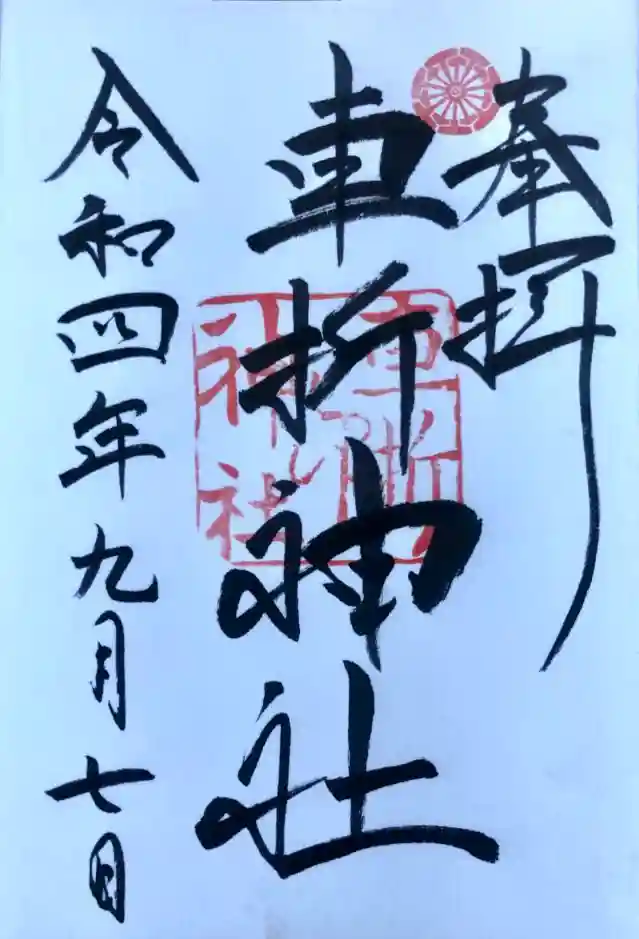 奉拝
車折神社
車折神社
令和四年九月七日